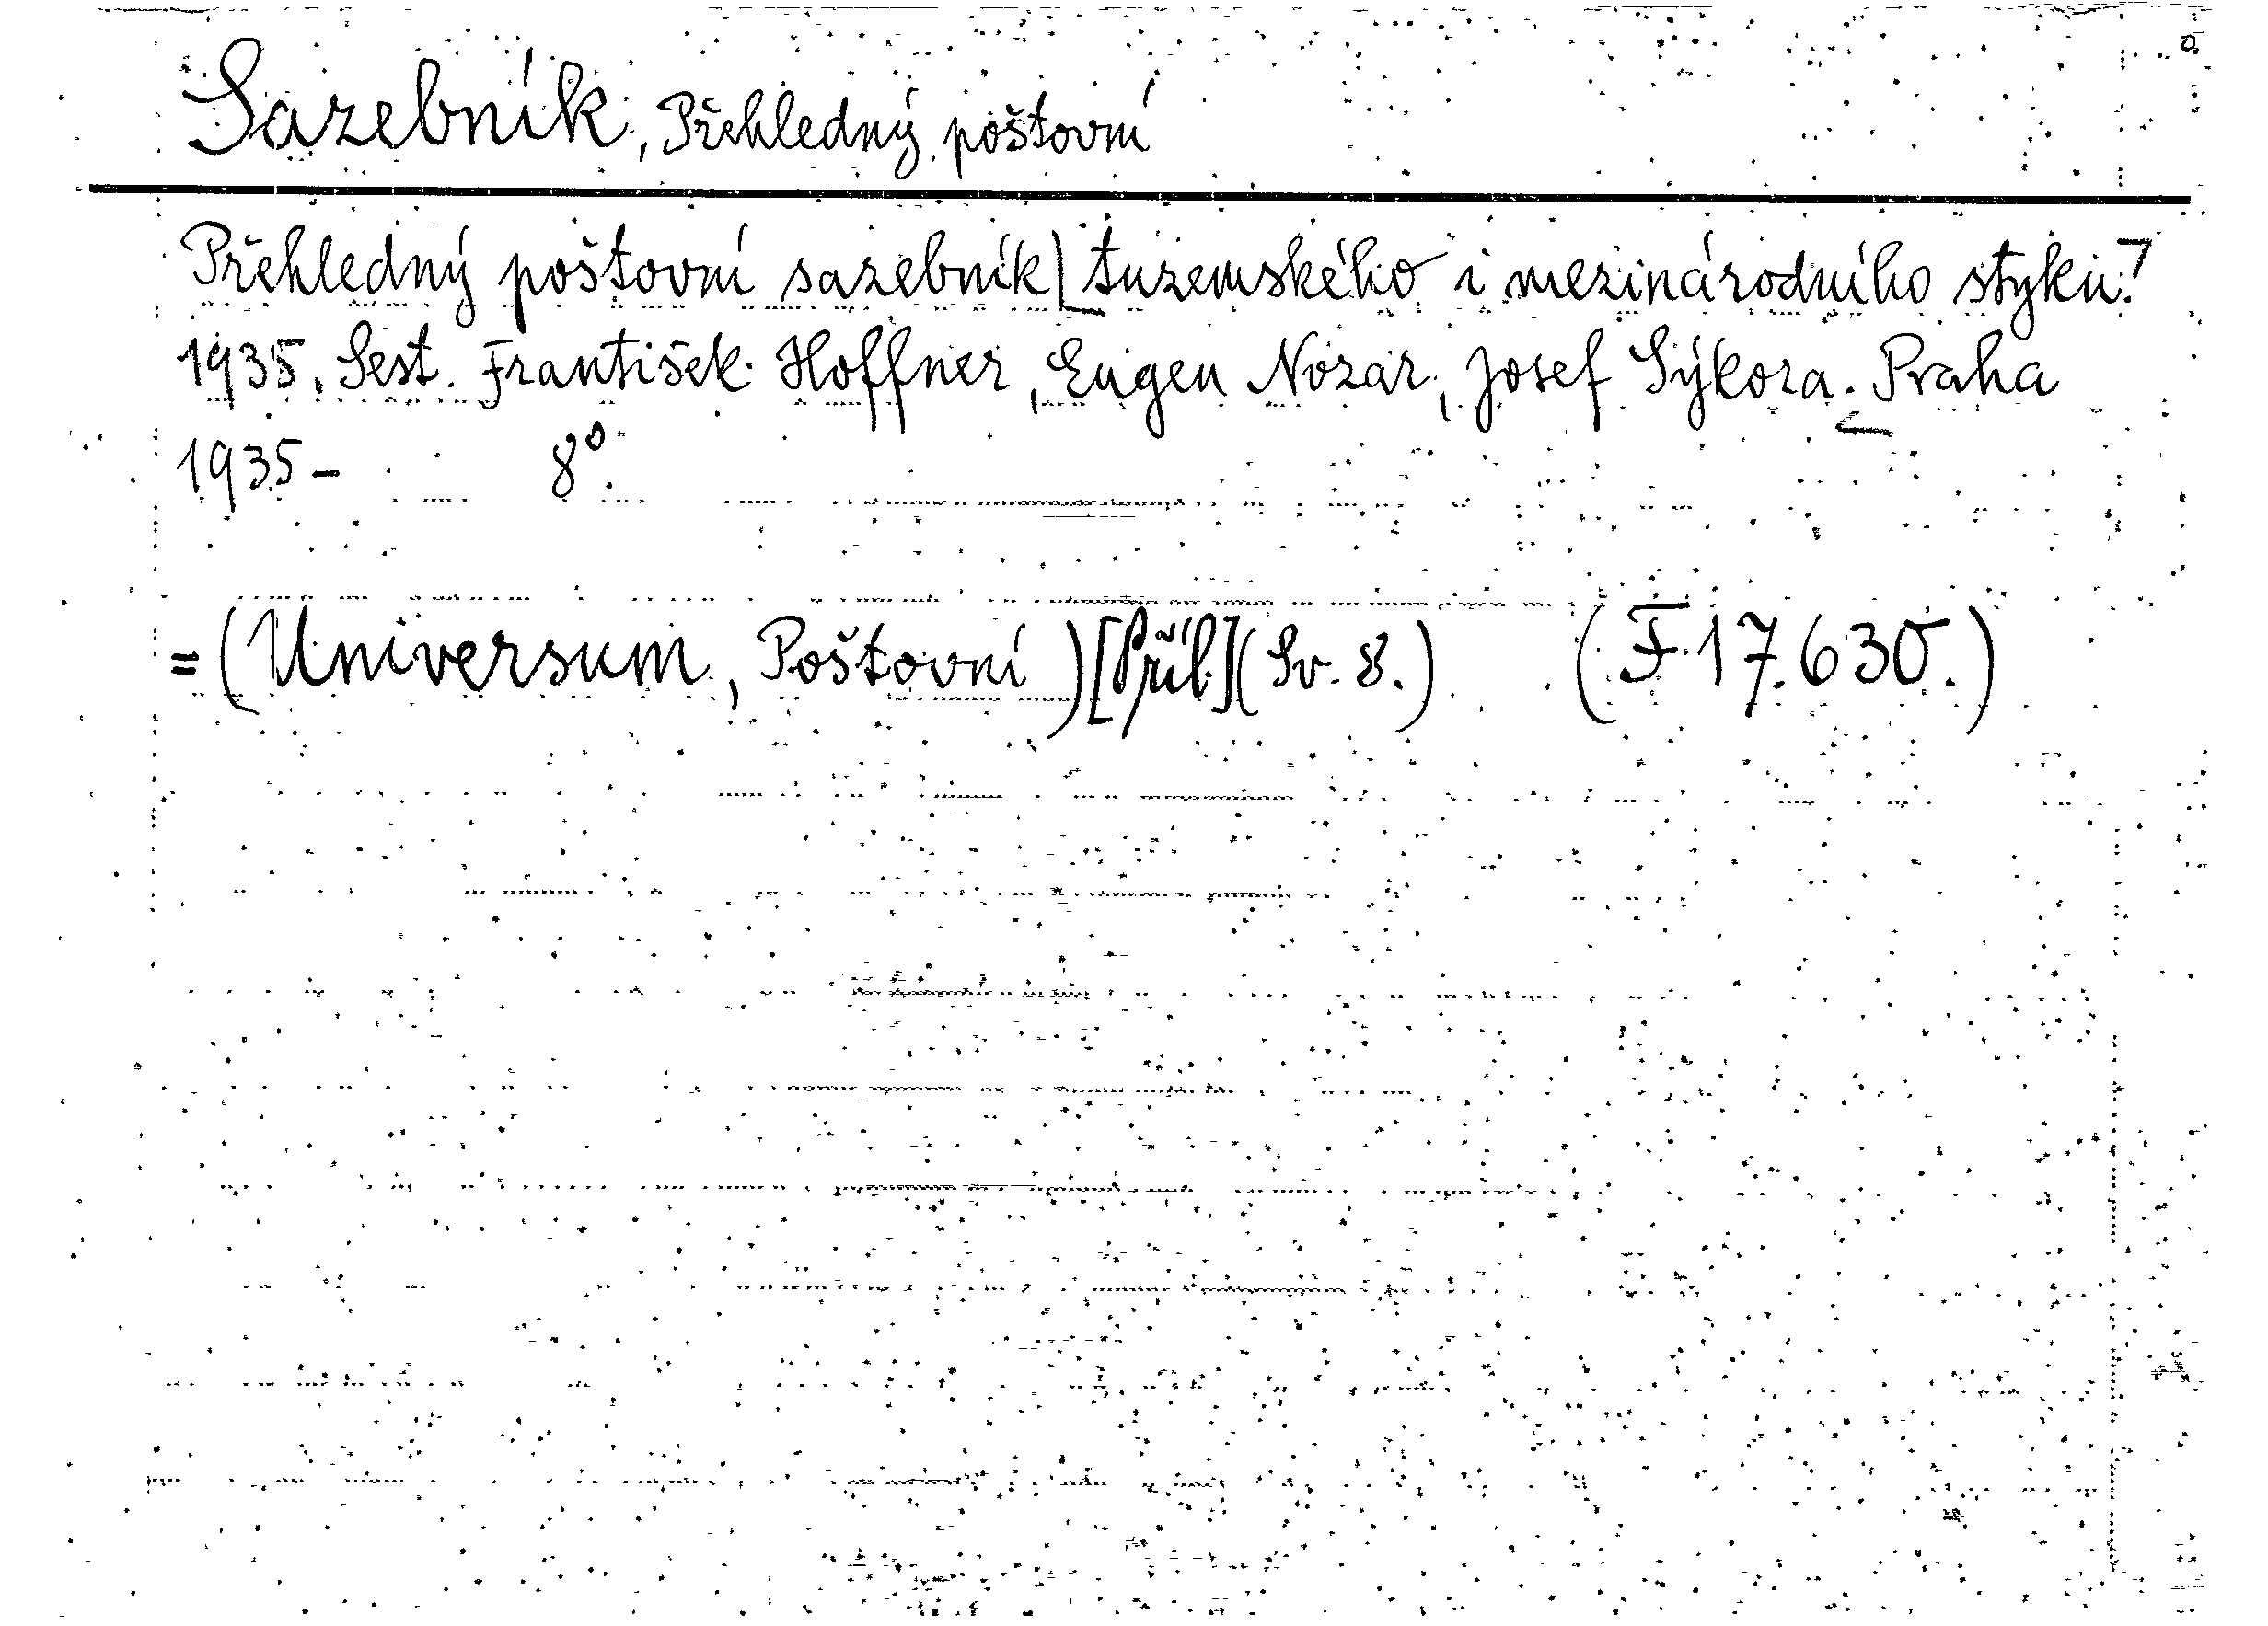 Sazebník, Přehledný poštovní
Přehledný poštovní sazebník [tuzemského i mezinárodního styku.]
1935. Sest. František Hoffner, Eugen Nozar, Josef Sýkora. Praha
1935– 8°.
= (Universum, Poštovní) [Příl.] (Sv. 8.) (F 17.630.)